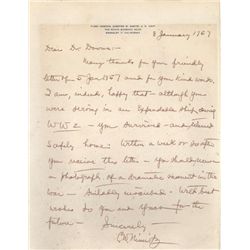 FLEET ADMIRAL CHESTER W. NIMITZ, U.S. NAVY
BERKELEY 7, CALIFORNIA
8 January 1967
Dear Dr. Downs:-
Many thanks for your friendly
letter of 5 Jan 1967 and for your kind words.
I am, indeed, happy that - although you
were serving in an Expendable ship during
WW2 - You survived - and returned
safely home. Within a week or so after
you receive this letter - you should receive
a photograph, of a dramatic moment in the
war - suitably inscribed - With best
wishes to you and yours for the
future - Sincerely -
C W Nimitz